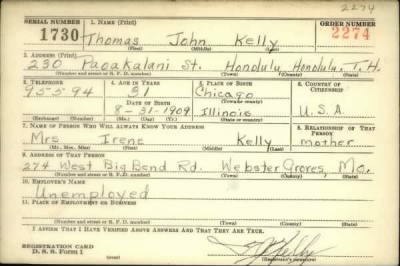 2274
SERIAL NUMBER 1. NAME (Print) ORDER NUMBER
1730 Thomas John Kelly 2274
(First) (Middle) (Last)
2. ADDRESS (Print)
230 Paoakalani St. Honolulu Honolulu, T.H.
(Number and street or R. F. D. number) (Town) (County) (State)
3. TELEPHONE 4. AGE IN YEARS 5. PLACE OF BIRTH 6. COUNTRY OF CITIZENSHIP
95594 31 Chicago
DATE OF BIRTH (Town or county)
8-31-1909 Illinois U.S.A.
(Exchange) (Number) (Mo.) (Day) (Yr.) (State or country)
7. NAME OF PERSON WHO WILL ALWAYS KNOW YOUR ADDRESS 8. RELATIONSHIP OF THAT PERSON
Mrs Irene Kelly mother
(Mr., Mrs., Miss) (First) (Middle) (Last)
9. ADDRESS OF THAT PERSON
274 West Big Bend Rd. Webster Groves, Mo.
(Number and street or R. F. D. number) (Town) (County) (State)
10. EMPLOYER'S NAME
Unemployed
11. PLACE OF EMPLOYMENT OR BUSINESS
(Number and street or R. F. D. number) (Town) (County) (State)
I AFFIRM THAT I HAVE VERIFIED ABOVE ANSWERS AND THAT THEY ARE TRUE.
REGISTRATION CARD
D. S. S. Form 1 (Registrant's signature)